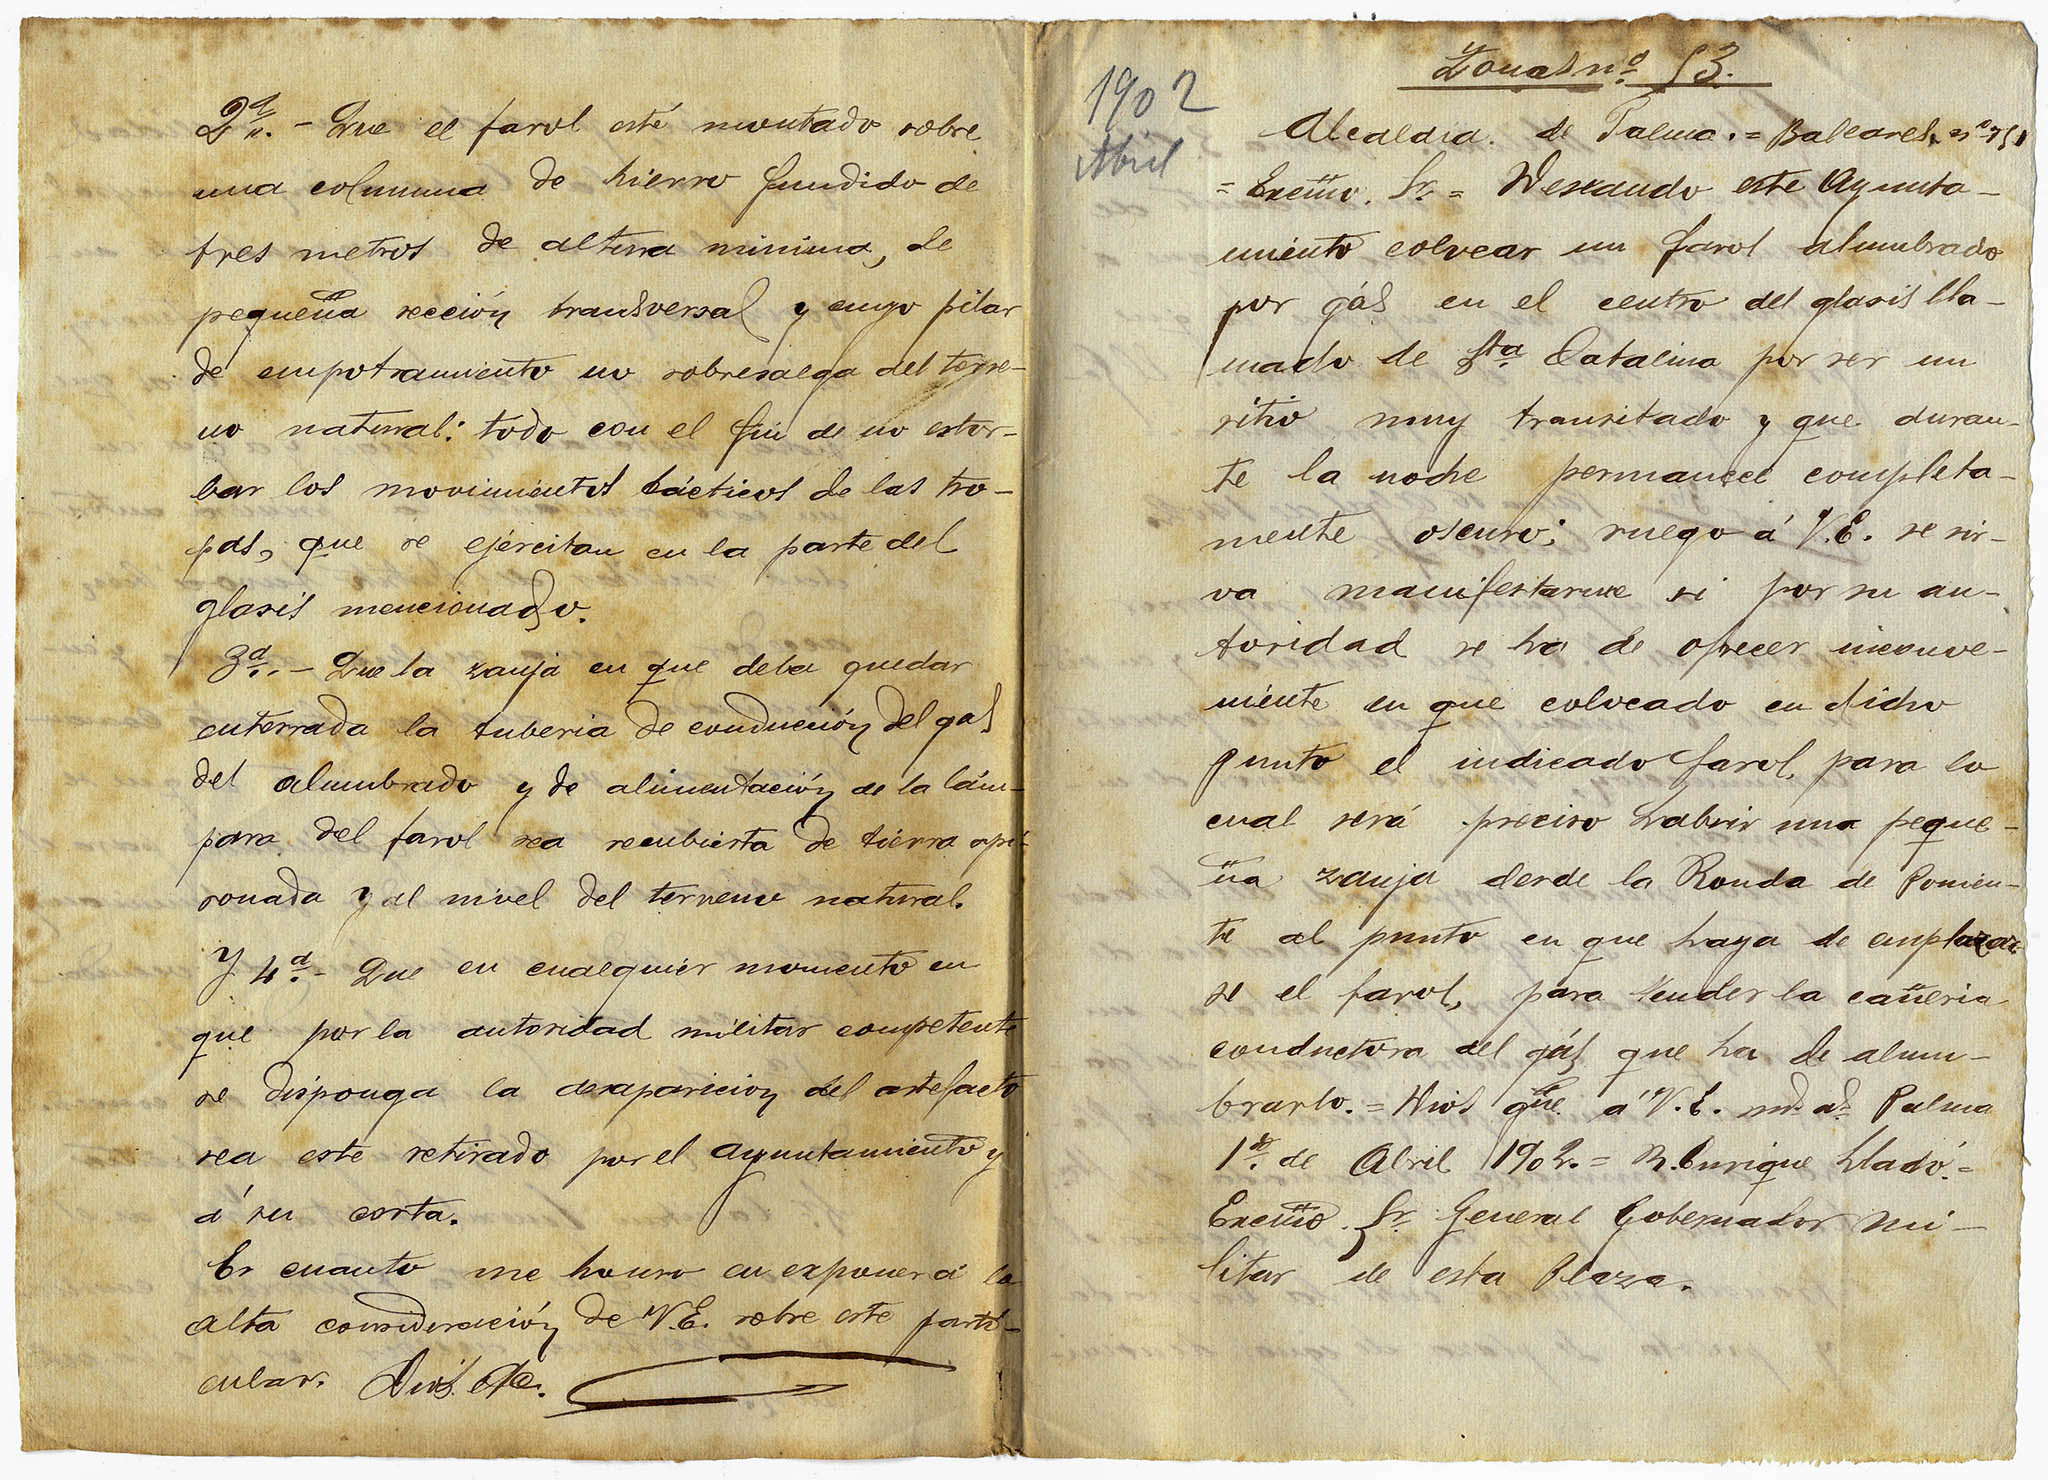 2ª.- Que el farol esté montado sobre
una columna de hierro fundido de
tres metros de altura minima, de
pequeña sección transversal y cuyo pilar
de empotramiento no sobresalga del terre-
no natural: todo con el fin de no estor-
bar los movimientos tácticos de las tro-
pas, que se ejércitan en la parte del
glasis mencionado.
3ª.- Que la zanja en que deba quedar
enterrada la tuberia de conducción del gas
del alumbrado y de alimentación de la lám-
para del farol sea recubierta de tierra api-
sonada y al nivel del terreno natural.
Y 4ª.- Que en cualquier momento en
que por la autoridad militar competente
se disponga la desaparicion del artefacto
sea este retirado por el ayuntamiento y
á su costa.
Es cuanto me honro en exponer á la
alta consideración de V.E. sobre este parti-
cular. Dios &ª.
1902
Abril
Zonas nº 53.
Alcaldia de Palma.= Baleares. nº 751
= Excmo. Sr. = Deseando este Ayunta-
miento colocar un farol alumbrado
por gás en el centro del glasis lla-
mado de Sta Catalina por ser un
sitio muy transitado y que duran-
te la noche permanece completa-
mente oscuro; ruego á V.E. se sir-
va manifestarme si por su au-
toridad se ha de ofrecer inconve-
niente en que colocado en dicho
punto el indicado farol, para lo
cual será preciso habrir una peque-
ña zanja desde la Ronda de Ponien-
te al punto en que haya de emplazar
se el farol, para tender la cañeria
conductora del gás que ha de alum-
brarlo.= Dios gue. á V.E. ms. as. Palma
1º. de Abril 1902.= Enrique Lladó.=
Excmo. Sr. General Gobernador Mi-
litar de esta Plaza.